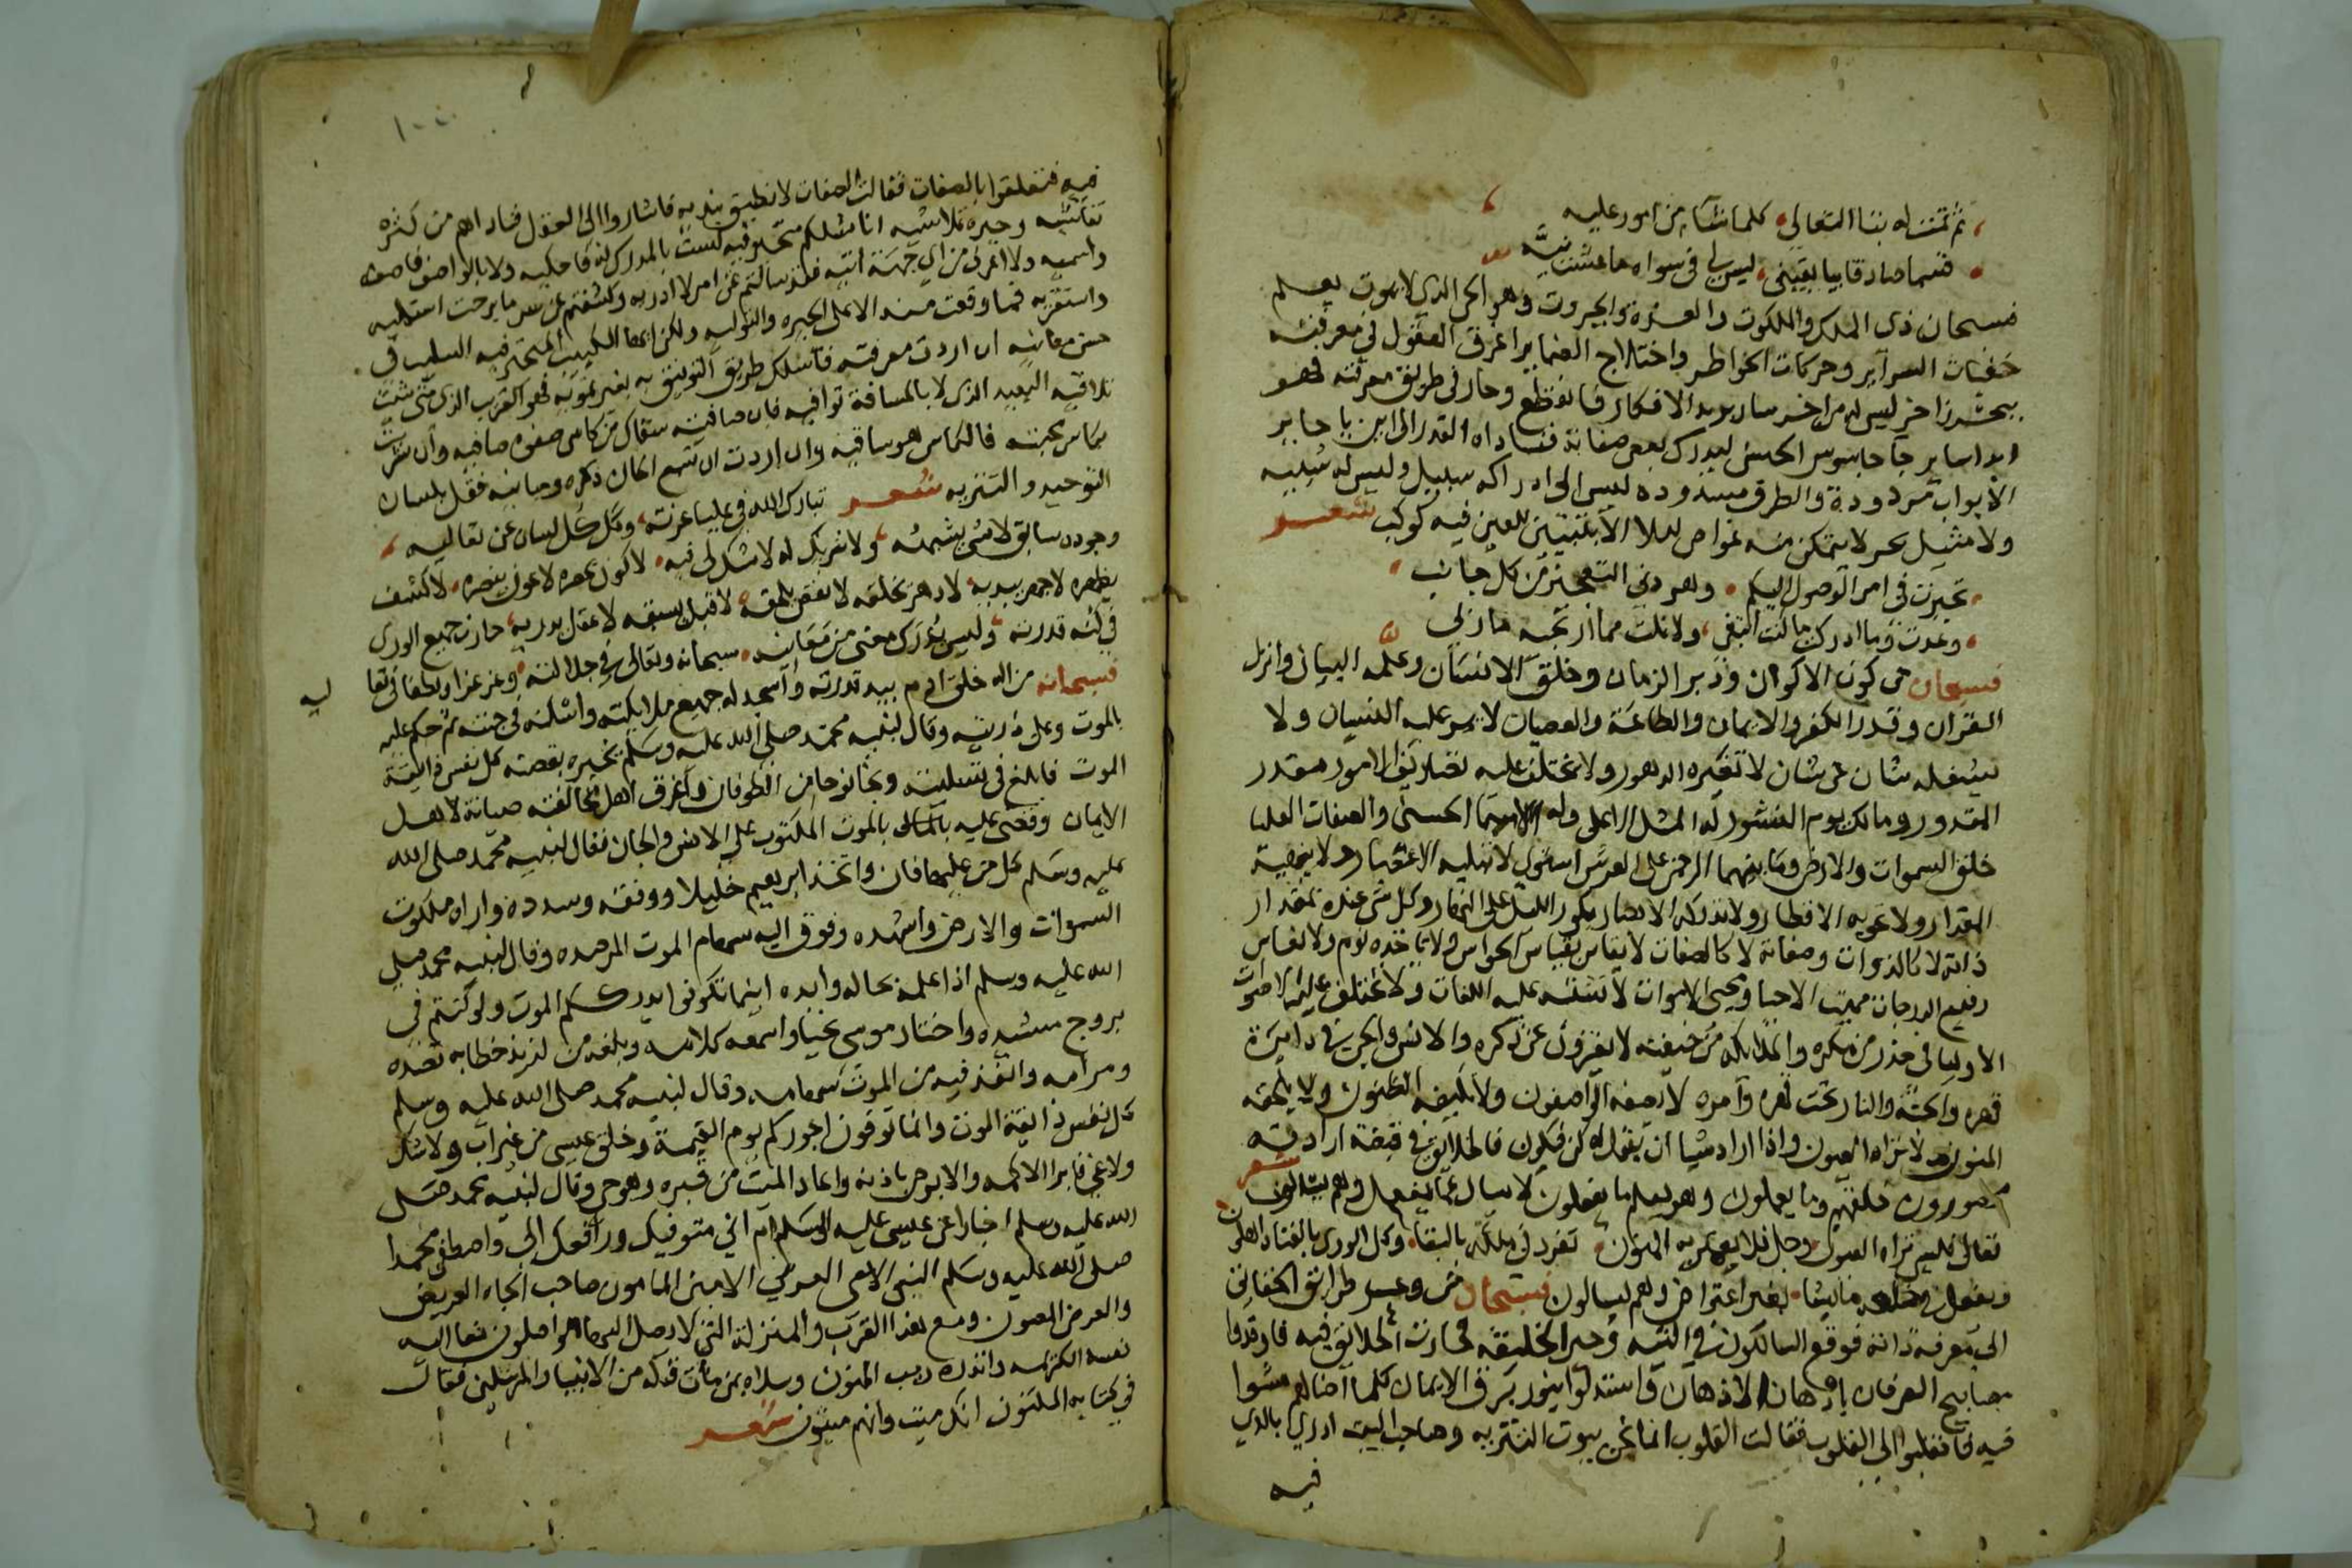 ثم تمتنا له بتنا التعالي كلما شآء من امور عليه
قسما صادقا بيا يقيني ليس لي في سواه ما عشت نيه
فسبحان ذى الملك والملكوت والعزة والجبروت وهو الحي الذي لا يموت يعلم
خفيات السرآير وحركات الخواطر واختلاج الضماير اغرق العقول في معرفته
ببحر زاخر ليس له من اخر سار بريد الافكار فانقطع وحار في طريق معرفته فهو
ابدا ساير جا جاسوس الحس ليدرك بعض صفاته فناداه القدر الى اين يا حاير
الابواب مردودة والطرق مسدوده ليس الى ادراكه سبيل وليس له شبيه
ولا مثيل بحر لا يتمكن منه غواص ليلا لا يتبين للعين فيه كوكب شعر
تحيرت في امر الوصول اليكم وهو دني التعجيز من كل جانب
وعدت وما ادركت ما كنت ابتغى ولا نلت مما ارتجيه ماربي
فسبحان من كون الاكوان ودبر الزمان وخلق الانسان وعلمه البيان وانزل
القران وقدر الكفر والايمان والطاعة والعصيان لا يجوز عليه النسيان ولا
يشغله شان عن شان لا تغيره الدهور ولا تختلف عليه تصاريف الامور مقدر
المقدور ومالك يوم النشور له المثل الاعلى وله الاسما الحسنى والصفات العليا
خلق السموات والارض وما بينهما الرحمن على العرش استوى لا تبليه الاعصار ولا يحصيه
المقدار ولا تحويه الاقطار ولا تدركه الابصار يكور الليل على النهار وكل شي عنده بمقدار
ذاته لا كالذوات وصفاته لا كالصفات لا يقاس بقياس الحواس ولا ياخذه نوم ولا نعاس
رفيع الدرجات مميت الاحيا ومحيى الاموات لا تشتبه عليه اللغات ولا تختلف عليه الاصوات
الاوليا في حذر من مكره والملايكة من خيفته لا يفترون عن ذكره والانس والجن في دايرة
قهره والجنة والنار تحت نهيه وآمره لا يصفه الواصفون ولا تكيفه الظنون ولا يلحقه
المنون لا تراه العيون واذا اراد شيا ان يقول له كن فيكون فالخلايق في قبضة ارادته
مقهورون خلقهم وما يعملون وهو يعلم ما يفعلون لا يسال عما يفعل وهم يسالون شعر
تعالى فليس تراه العيون وجل فلا يعتريه المنون تفرد في ملكه بالبقا وكل الورى بالفنا راهنون
ويفعل في خلقه ما يشا بغير اعتراض وهم يسالون فسبحان من وعر طرايق الخلايق
الى معرفة ذاته فوقع السالكون في التيه وحير الخليقة فحارت الخلايق فيه فاوقدوا
مصابيح العرفان بادهان الاذهان واستدلوا بنور برق الايمان كلما اضا لهم مشوا
فيه فانقلبوا الى القلوب فقالت القلوب انما نحن بيوت التنزيه وصاحب البيت ادرى بالذي
فيه
١٠٠
فيه فتعلقوا بالصفات فقالت الصفات لا نطيق نبديه فاشاروا الى العقل فناداهم من كثرة
تفتيشه وحيرة تلاشيه انا مثلكم متحير فيه لست بالمدرك له فاحكيه ولا بالواصف فاصفه
واسميه ولا اعرف من اي جهة اتيه فلقد سالتم عن امر لا ادريه وكشفتم عن سر ما برحت استحليه
واستقريه فما وقعت منه الا على الحيره والتوليه ولكن ايها الكئيب المتحير فيه السلب في
حسن معانيه ان اردت معرفته فاسلك طريق التوفيق به بغير تمويه فهو القريب الذي متى شئت
تلاقيه البعيد الذى لا بالمسافة توافيه فان صافيته سقاك من كاس صفوه صافيه وان شربت
بكاس محبته فالكاس هو ساقيه وان اردت ان تفهم الحان ذكره ومبانيه فقل بلسان
التوحيد والتنزيه شعر تبارك الله في عليا عزته وكل كل لسان عن تعاليه
وجوده سابق لا شي يشبهه ولا شريك له لا شك لي فيه لا كون يحصره لا عون ينصره لا كشف
يظهره لا جهر يبديه لا دهر يخلقه لا نقص يلحقه لا قبل يسبقه لا عقل يدريه حارت جميع الورى
في كنه قدرته وليس يدرك معنى من معانيه سبحانه وتعالى في جلالته وعز عزا ولطفا في تعا
ليه
فسبحانه من اله خلق ادم بيد قدرته وأسجد له جميع ملايكته واسكنه في جنته ثم حكم عليه
بالموت وعلى ذريته وقال لنبيه محمد صلى الله عليه وسلم يخبره بقصته كل نفس ذايقة
الموت فابلغ في تسليته ونجا نوحا من الطوفان واغرق اهل مخالفته صيانة لاهل
الايمان وقضى عليه بالموت المكتوب على الانس والجان فقال لنبيه محمد صلى الله
عليه وسلم كل من عليها فان واتخذ ابرهيم خليلا ووفقه وسدده واراه ملكوت
السموات والارض واشهده وفوق اليه سهام الموت المرصده وقال لنبيه محمد صلى
الله عليه وسلم اذا علمه بحاله وايده اينما تكونوا يدرككم الموت ولو كنتم في
بروج مشيده واختار موسى نجيا واسمعه كلامه وبلغه من لذيذ خطابه قصده
ومرامه وانفذ فيه من الموت سهامه وقال لنبيه محمد صلى الله عليه وسلم
كل نفس ذايقة الموت وانما توفون اجوركم يوم القيمة وخلق عيسى من غير اب ولا شك
ولا غي فابرا الاكمه والابرص باذنه واعاد الميت من قبره وهو حي وقال لنبيه محمد صلى
الله عليه وسلم اخبارا عن عيسى عليه السلم اني متوفيك ورافعك الي واصطفى محمدا
صلى الله عليه وسلم النبي الامي العربي الامين المامون صاحب الجاه العريض
والعرض المصون ومع هذا القرب والمنزلة التي لا يصل اليها الواصلون نعا اليه
نفسه الكريمه وانذره ريب المنون وسلاه بمن مات قبله من الانبيا والمرسلين فقال
في كتابه المكنون انك ميت وانهم ميتون شعر